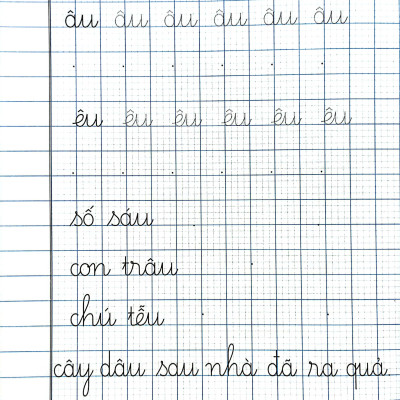 âu âu âu âu âu âu
êu êu êu êu êu êu
số sáu
con trâu
chú tễu
cây dâu sau nhà đã ra quả.